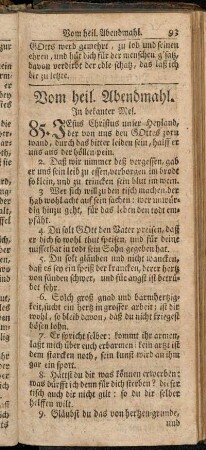 Vom heil. Abendmahl. 93
GOttes werd gemehrt, zu lob und seinen
ehren, und hüt dich für der menschen g'satz,
davon verdirbt der edle schatz, das laß ich
dir zu letzte.
Vom heil. Abendmahl.
In bekanter Mel.
85. JEsus Christus unser Heyland,
der von uns den GOttes zorn
wand, durch das bitter leiden sein, half er
uns aus der höllen pein.
2. Daß wir nimmer deß vergessen, gab
er uns sein leib zu essen, verborgen im brodt
so klein, und zu trincken sein blut im wein.
3. Wer sich will zu den tisch machen, der
hab wohl acht auf sein sachen: wer unwür-
dig hinzu geht, für das leben den todt em-
pfäht.
4. Du solt GOtt den Vater preisen, daß
er dich so wohl thut speisen, und für deine
missethat in todt sein Sohn gegeben hat.
5. Du solt gläuben und nicht wancken,
daß es sey ein speiß der krancken, derer hertz
von sünden schwer, und für angst ist betrü-
bet sehr.
6. Solch groß gnad und barmhertzig-
keit, sucht ein hertz in grosser arbeit: ist dir
wohl, so bleib davon, daß du nicht kriegest
bösen lohn.
7. Er spricht selber: kommt ihr armen,
laßt mich über euch erbarmen: kein artzt ist
dem starcken noth, sein kunst wird an ihm
gar ein spott.
8. Hättst du dir was können erwerben:
was dürfft ich denn für dich sterben? dieser
tisch auch dir nicht gilt: so du dir selber
helffen wilt.
9. Gläubst du das von hertzen grunde,
und